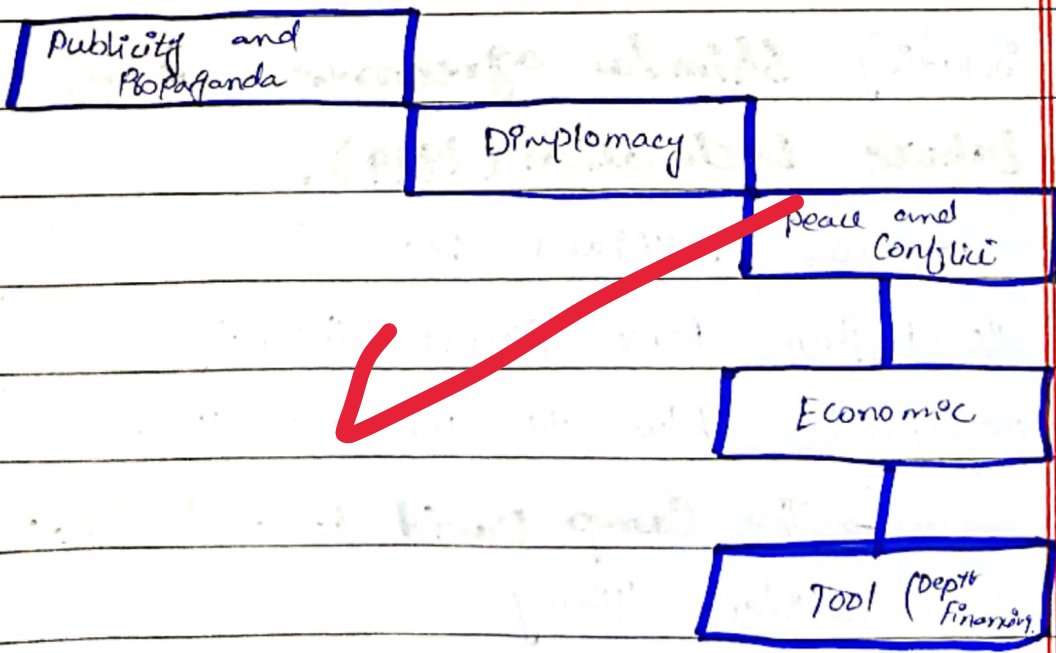 Publicity and
Propaganda
Dimplomacy
Peace and
Conflict
Economic
Tool (Depth
Financing.